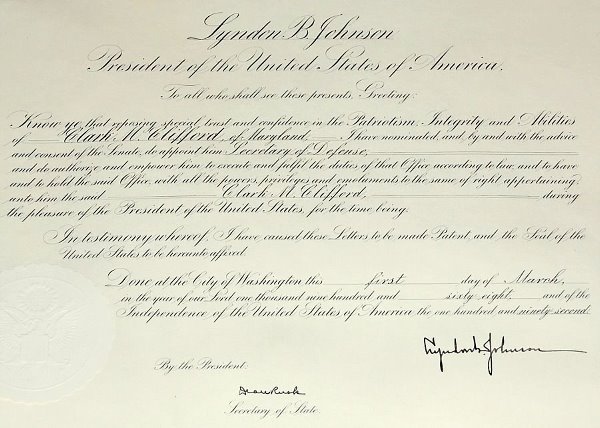 Lyndon B. Johnson
President of the United States of America.
To all who shall see these presents, Greeting:
Know ye, that reposing special trust and confidence in the Patriotism, Integrity and Abilities
of Clark M. Clifford, of Maryland, I have nominated, and, by and with the advice
and consent of the Senate, do appoint him Secretary of Defense,
and do authorize and empower him to execute and fulfil the duties of that Office according to law, and to have
and to hold the said Office, with all the powers, privileges and emoluments to the same of right appertaining,
unto him the said Clark M. Clifford, during
the pleasure of the President of the United States, for the time being.
In testimony whereof, I have caused these Letters to be made Patent, and the Seal of the
United States to be hereunto affixed.
Done at the City of Washington this first day of March,
in the year of our Lord one thousand nine hundred and sixty-eight, and of the
Independence of the United States of America the one hundred and ninety-second.
Lyndon B. Johnson
By the President:
Dean Rusk
Secretary of State.